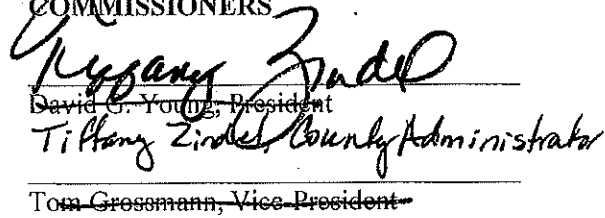 COMMISSIONERS
Tiffany Zindel
David G. Young, President
Tiffany Zindel, County Administrator
Tom Grossmann, Vice-President